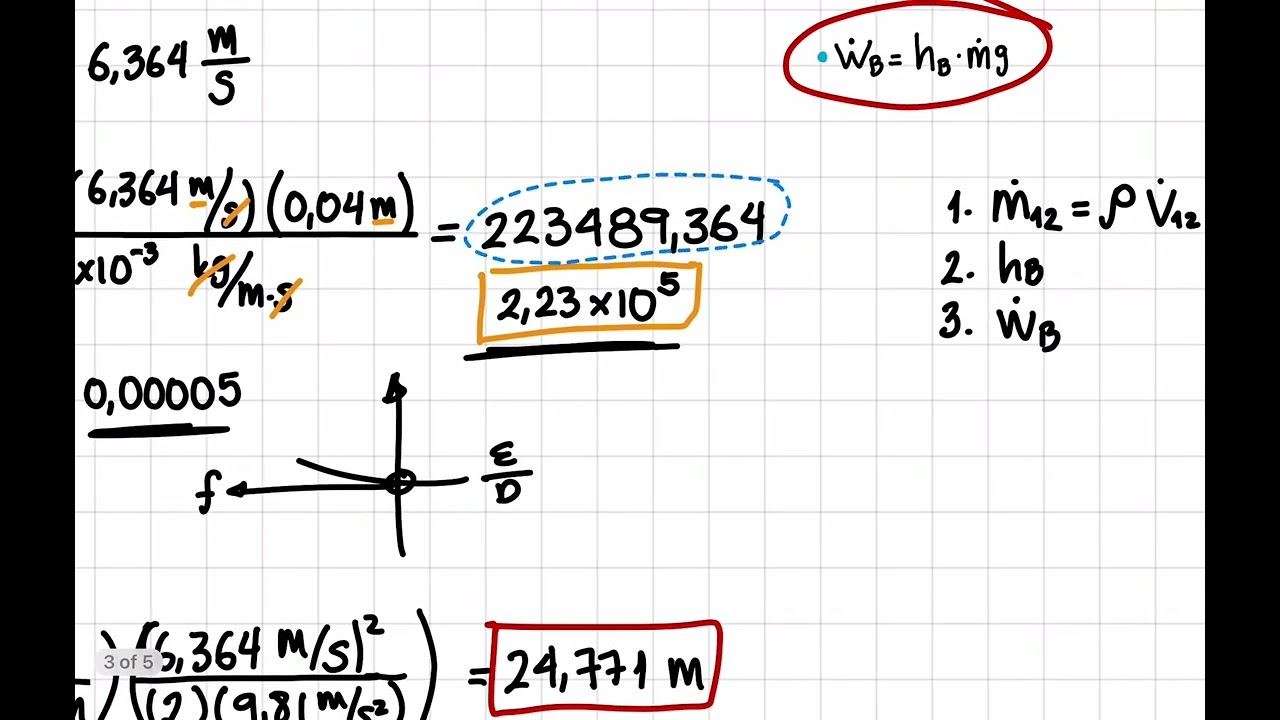 6,364 m/s
• Ẇ_B = h_B · ṁg
(6,364 m/s)(0,04 m)
x10⁻³ kg/m·s
= 223489,364
2,23 x 10⁵
1. ṁ₁₂ = ρ V̇₁₂
2. h_B
3. Ẇ_B
0,00005
f
ε/D
(6,364 m/s)²
(2)(9,81 m/s²)
= 24,771 m
3 of 5